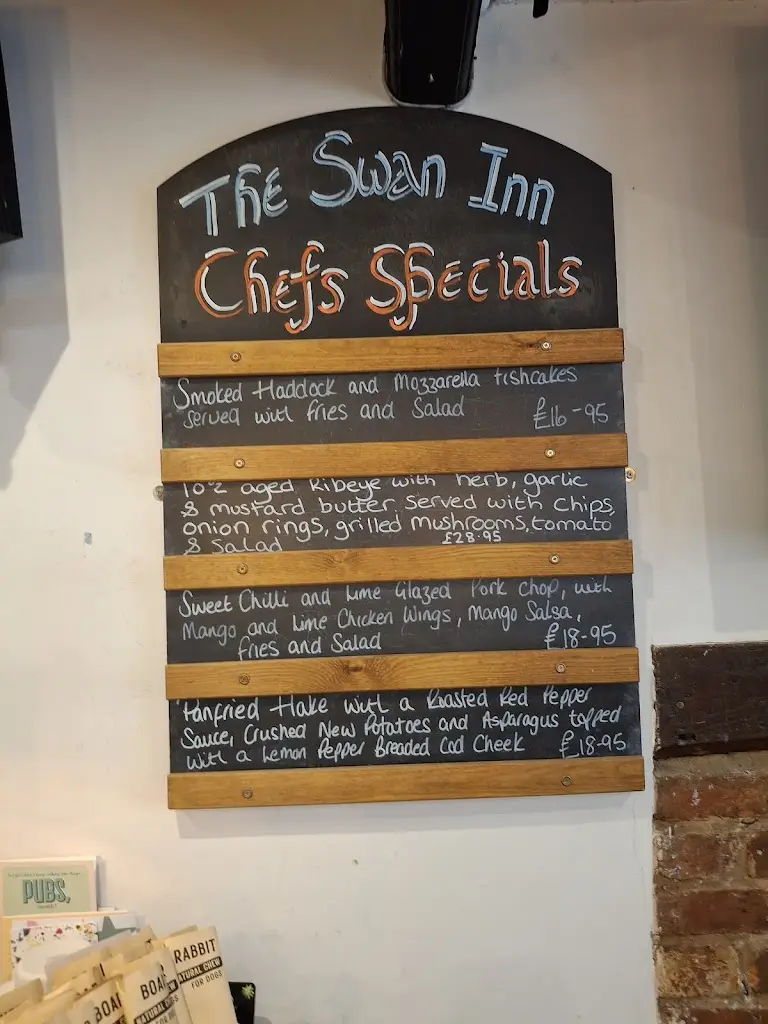 The Swan Inn
Chefs Specials
Smoked Haddock and Mozzarella fishcakes
served with fries and Salad £16-95
10oz aged Ribeye with herb, garlic
& mustard butter served with chips,
onion rings, grilled mushrooms, tomato
& Salad £28.95
Sweet Chilli and Lime Glazed Pork chop, with
Mango and Lime Chicken Wings, Mango Salsa,
fries and Salad £18-95
Panfried Hake with a Roasted Red Pepper
Sauce, Crushed New Potatoes and Asparagus topped
with a Lemon Pepper Breaded Cod Cheek £18-95
PUBS,
RABBIT
NATURAL CHEW
FOR DOGS
BOAR
NATURAL
FOR
BOAR